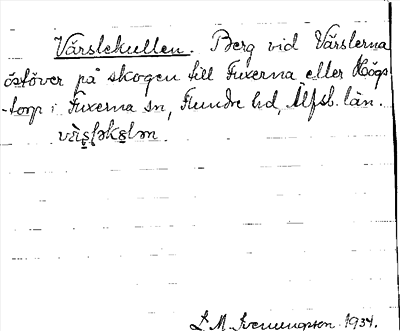 Värslekullen. Berg vid Värslerna
öståver på skogen till Fuxerna eller Högs
-torp i Fuxerna sn, Flundre hd, Älfsb. län.
L. M. Svenungsson 1934.